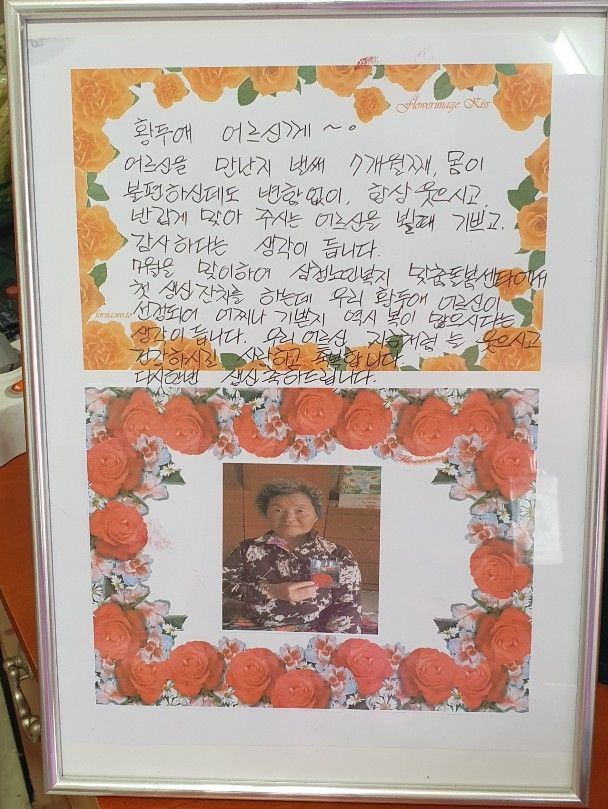 Flowerimage Kiss
황두애 어르신께~♡
어르신을 만난지 벌써 7개월째, 몸이
불편하신데도 변함없이, 항상 웃으시고,
반갑게 맞아 주시는 어르신을 뵐때 기쁘고,
감사하다는 생각이 듭니다.
7월을 맞이하여 삼천노인복지 맞춤돌봄센타에서
첫 생신잔치를 하는데 우리 황두애 어르신이
선정되어 어찌나 기쁜지 역시 복이 많으시다는
생각이 듭니다. 우리 어르신 지금처럼 늘 웃으시고
건강하시길 사랑하고 축복합니다
다시한번 생신 축하드립니다.